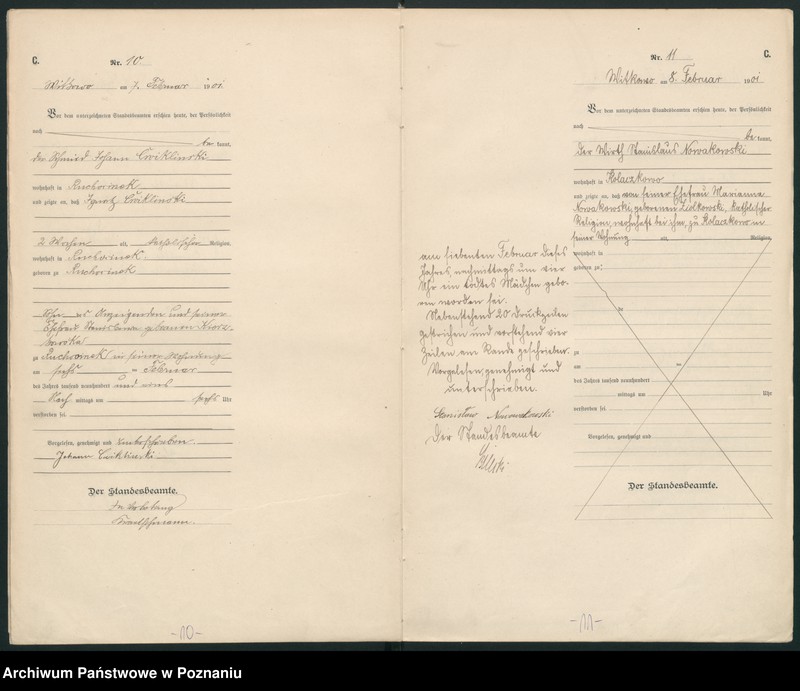 C.
Nr. 10.
Witkowo am 7. Februar 1901
Vor dem unterzeichneten Standesbeamten erschien heute, der Persönlichkeit
nach
be kannt,
der Schmied Johann Cwiklinski
wohnhaft in Ruchocinek
und zeigte an, daß Ignatz Cwiklinski
2 Wochen alt, katholischer Religion,
wohnhaft in Ruchocinek
geboren zu Ruchocinek
Sohn des Anzeigenden und seiner
Ehefrau Stanislawa geborenen
zu Ruchocinek in seiner Behausung
am sechs ten Februar
des Jahres tausend neunhundert und eins
Nach mittags um sechs Uhr
verstorben sei.
Vorgelesen, genehmigt und unterschrieben
Johann Cwiklinski
Der Standesbeamte.
In Vertretung
C.
Nr. 11
Witkowo am 8. Februar 1901
Vor dem unterzeichneten Standesbeamten erschien heute, der Persönlichkeit
nach
be kannt,
der Wirth Stanislaus Nowakowski
wohnhaft in Kolaczkowo
und zeigte an, daß von seiner Ehefrau Marianna
Nowakowski, geborenen Ziolkowski, katholischer
Religion, wohnhaft bei ihm, zu Kolaczkowo in
seiner Wohnung alt, Religion,
wohnhaft in
geboren zu
zu
am ten
des Jahres tausend neunhundert
mittags um Uhr
verstorben sei
Vorgelesen, genehmigt und
Der Standesbeamte.
am siebenten Februar dieses
Jahres, nachmittags um vier
Uhr ein todtes Mädchen gebo-
ren worden sei.
Nebenstehend 20 Druckzeilen
gestrichen und vorstehend vier
Zeilen am Rande geschrieben.
Vorgelesen, genehmigt und
unterschrieben.
Stanisław Nowakowski
Der Standesbeamte
-10-
-11-
Archiwum Państwowe w Poznaniu